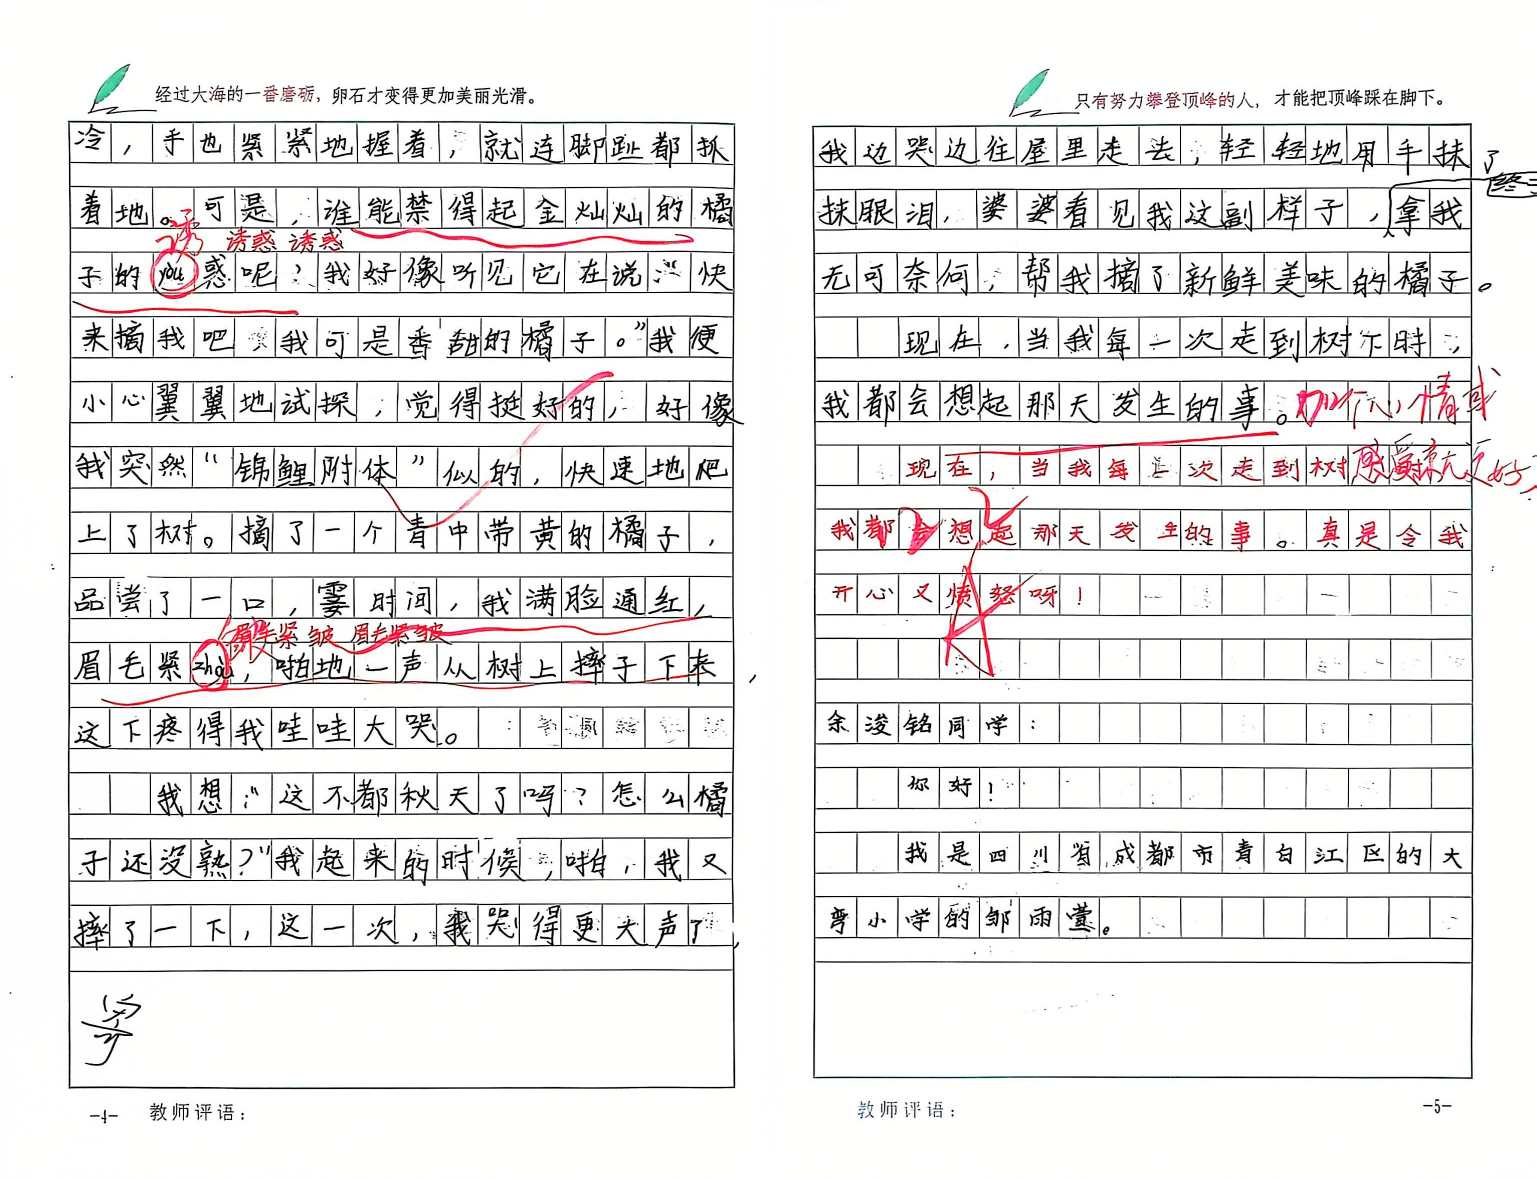 经过大海的一番磨砺，卵石才变得更加美丽光滑。
冷，手也紧紧地握着，就连脚趾都抓
着地。可是，谁能禁得起金灿灿的橘
诱 诱惑 诱惑
子的you惑呢？我好像听见它在说：“快
来摘我吧 我可是香甜的橘子。”我便
小心翼翼地试探，觉得挺好的，好像
我突然“锦鲤附体”似的，快速地爬
上了树。摘了一个青中带黄的橘子，
品尝了一口，霎时间，我满脸通红，
眉毛紧皱 眉毛紧皱
眉毛紧zhou，啪地一声从树上摔子下来，
这下疼得我哇哇大哭。
我想：“这不都秋天了吗？怎么橘
子还没熟？”我起来的时候，啪，我又
摔了一下，这一次，我哭得更大声了，
-4-
教师评语：
只有努力攀登顶峰的人，才能把顶峰踩在脚下。
我边哭边往屋里走去，轻轻地用手抹了
抹眼泪，婆婆看见我这副样子，拿我
无可奈何，帮我摘了新鲜美味的橘子。
现在，当我每一次走到树下时，
我都会想起那天发生的事。加个心情或
现在，当我每一次走到树 感受就更好
我都会想起那天发生的事。真是令我
开心又愤怒呀！
余浚铭同学：
你好！
我是四川省成都市青白江区的大
弯小学的邹雨萱。
教师评语：
-5-